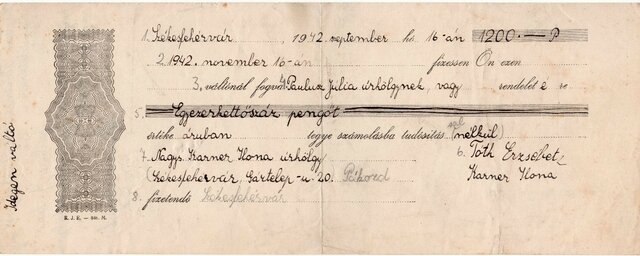 1. Székesfehérvár, 1942. szeptember hó 16-án 1200.— P
2. 1942. november 16-án fizessen Ön ezen
3, váltónál fogva 4 Paulusz Júlia úrhölgynek, vagy rendeletére
5. Egyezerkettőszáz pengőt
értéke áruban tegye számolásba tudósítás nélkül)
7. Nagys. Karner Ilona úrhölgy 6. Tóth Erzsébet
(Székesfehérvár, Gartelep-u. 20. Karner Ilona
8. fizetendő Székesfehérvár
K. J. E. —
Idegen váltó